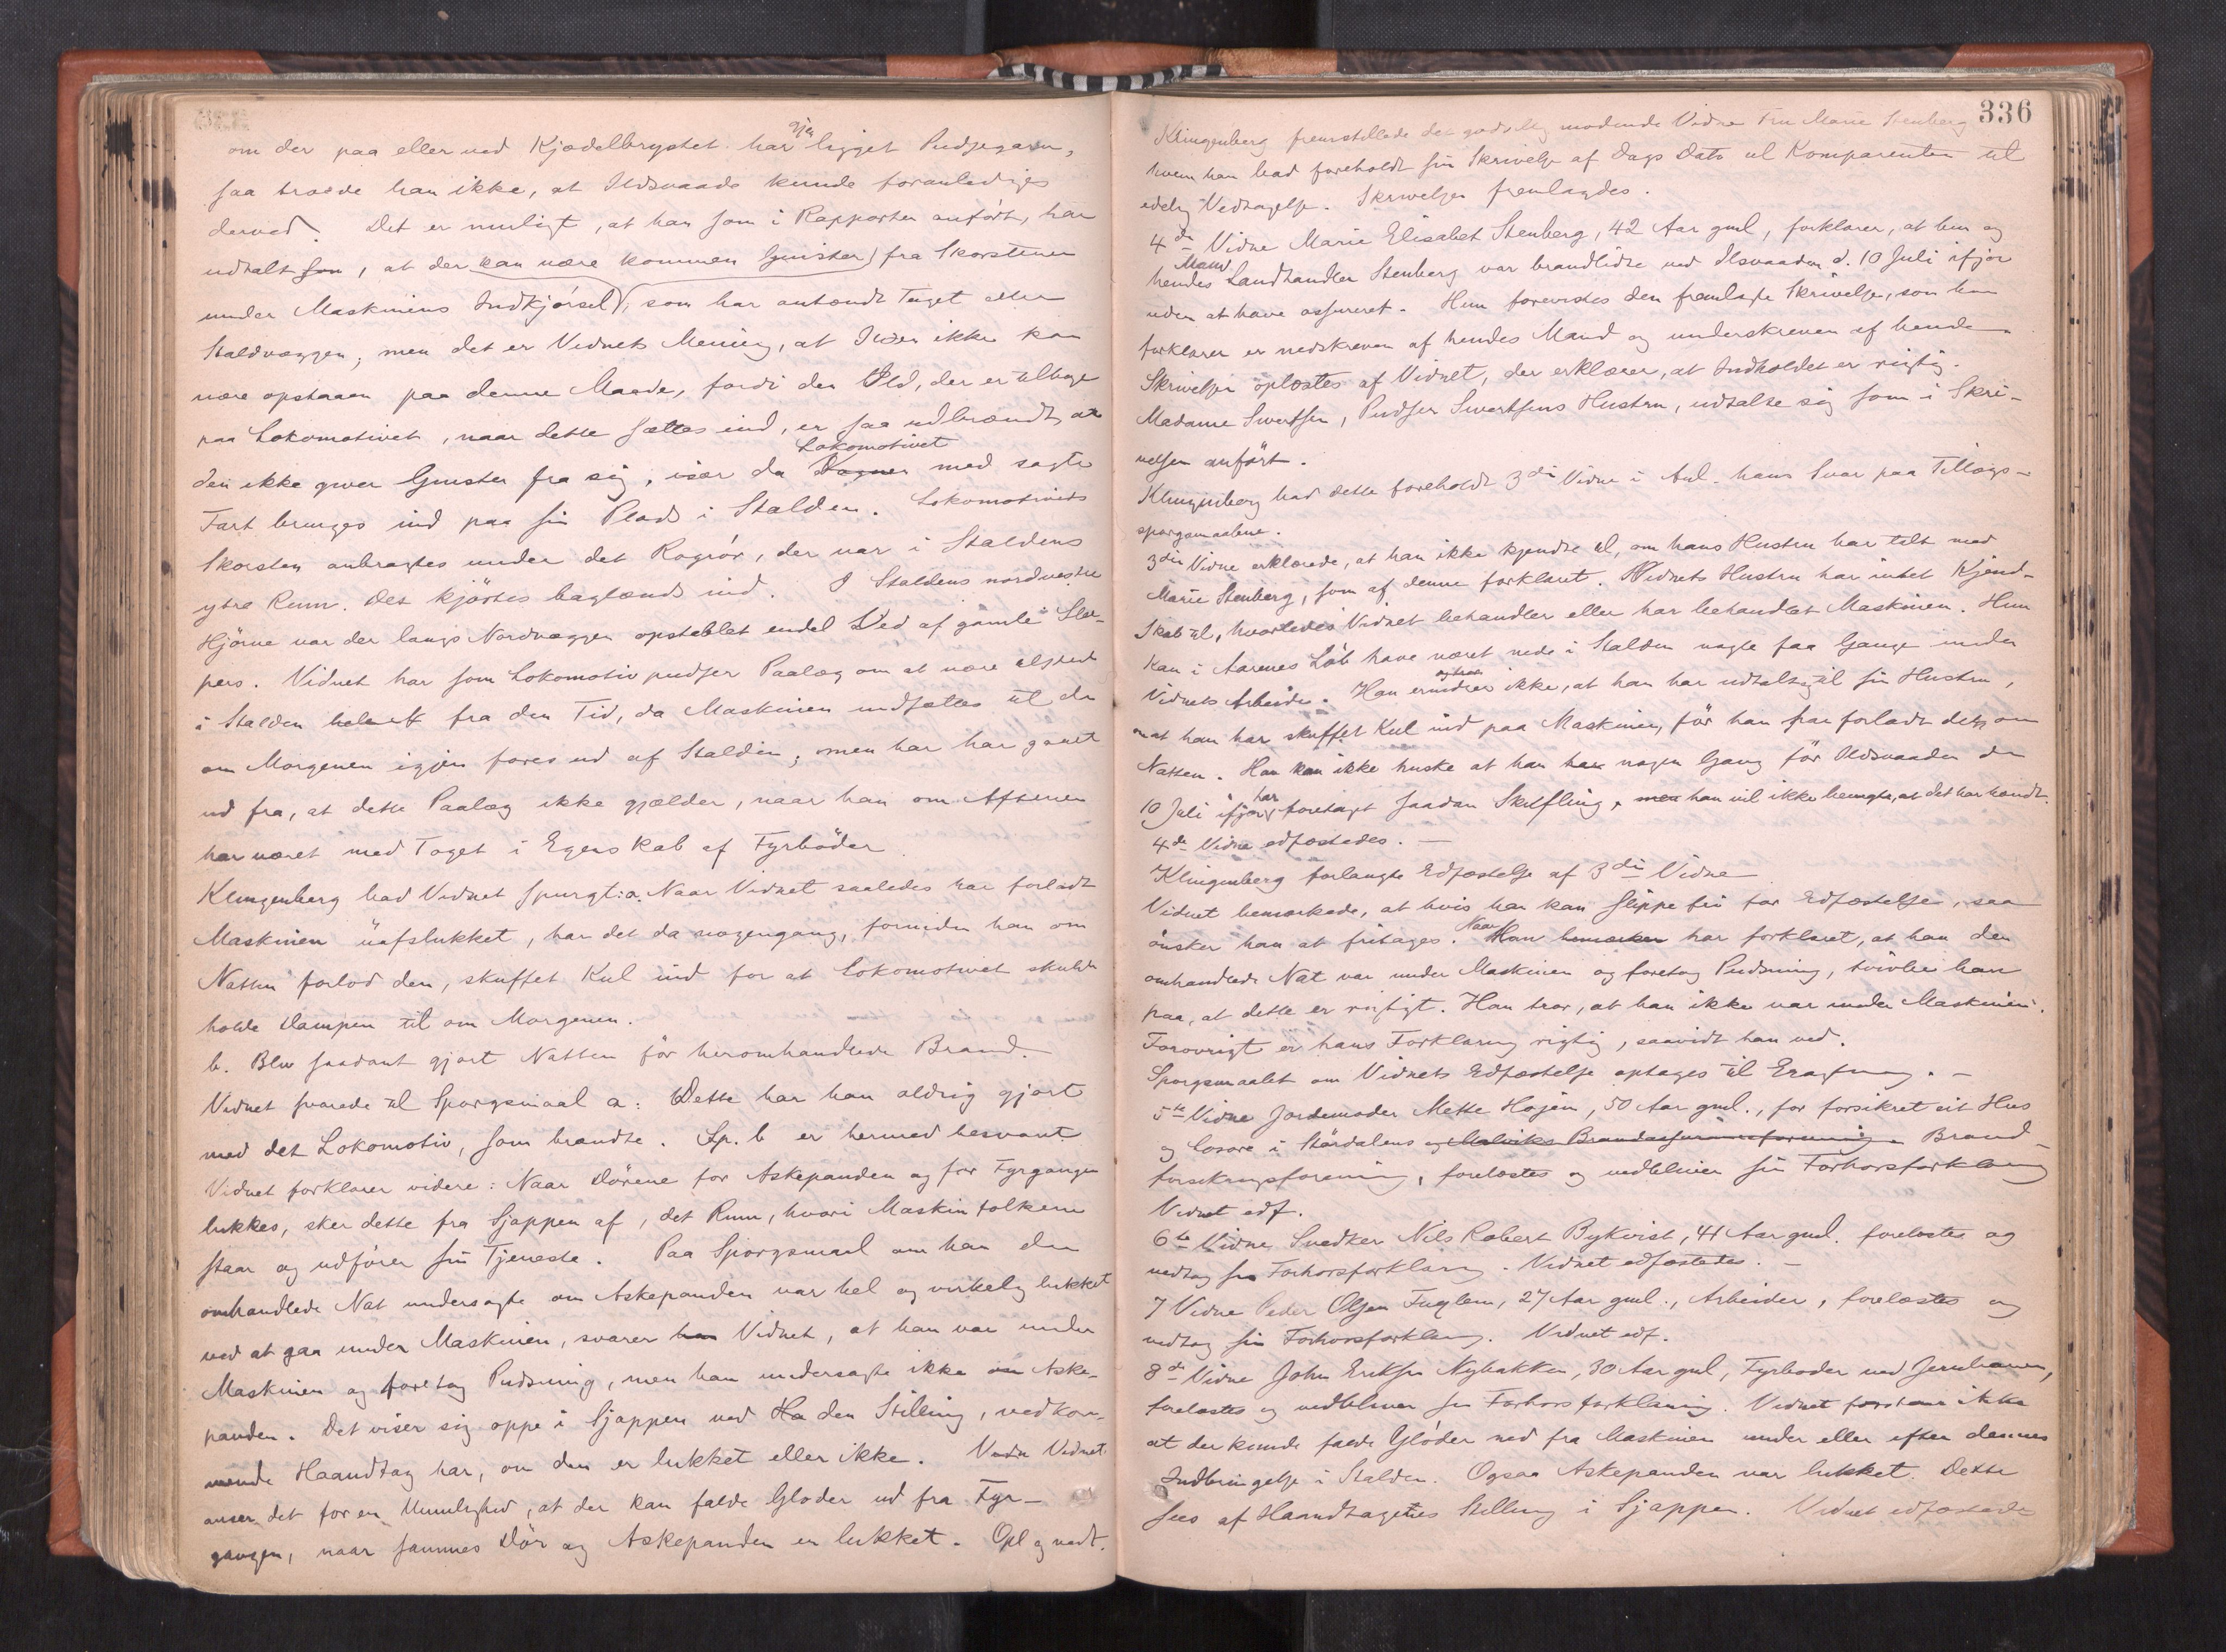 om der paa eller ved Kjædelbrystet har igjen ligget Pudsegarn,
saa troede han ikke, at Ildsvaade kunde foranlediges
derved. Det er muligt, at han som i Rapporten anført, har
udtalt som, at der kan være kommen Gnister fra Skorstenen
under Maskinens Indkjørsel, som har antændt Taget eller
Staldvæggen; men det er Vidnets Mening, at Ilden ikke kan
være opstaaen paa denne Maade, fordi den Ild, der er tilbage
paa Lokomotivet, naar dette sættes ind, er saa udbrændt, at
den ikke giver Gnister fra sig, især da Vognen Lokomotivet med sagte
Fart bringes ind paa sin Plads i Stalden. Lokomotivets
Skorsten anbragtes under det Røgrör, der var i Staldens
ytre Rum. Det kjörtes baglænds ind. I Staldens nordvestre
Hjörne var der langs Nordvæggen opstablet endel Ved af gamle Sle-
pers. Vidnet har som Lokomotivpudser Paalæg om at være tilstede
i Stalden helt fra den Tid, da Maskinen indsættes til den
om Morgenen igjen føres ud af Stalden; men han har gaaet
ud fra, at dette Paalæg ikke gjælder, naar han om Aftenen
har været med Toget i Egenskab af Fyrböder.
Klingenberg bad Vidnet spurgt: a. Naar Vidnet saaledes har forladt
Maskinen uafslukket, har det da nogengang, forinden han om
Natten forlod den, skuffet Kul ind for at Lokomotivet skulde
holde Dampen til om Morgenen.
b. Blev saadant gjort Natten för heromhandlede Brand.
Vidnet svarede til Spørgsmaal a: Dette har han aldrig gjort
med det Lokomotiv, som brændte. Sp. b er hermed besvaret
Vidnet forklarer videre: Naar Dörene for Askepanden og for Fyrgangen
lukkes, sker dette fra Sjappen af, det Rum, hvori Maskinfolkene
staar og udfører sin Tjeneste. Paa Spørgsmaal om han den
omhandlede Nat undersøgte om Askepanden var hel og virkelig lukket
ved at gaa under Maskinen, svarer han Vidnet, at han var under
Maskinen og foretog Pudsning, men han undersøgte ikke om Aske-
panden. Det viser sig oppe i Sjappen ved Ha den Stilling, vedkom-
mende Haandtag har, om den er lukket eller ikke. Vidnet
anser det for en Umulighed, at der kan falde Gløder ud fra Fyr-
gangen, naar sammes Dör og Askepanden er lukket. Opl og vedt.
336
Klingenberg fremstillede det godvillig mødende Vidne Fru Marie Stenberg
hvem han bad foreholdt sin Skrivelse af Dags Dato til Komparenten til
edelig Vedtagelse. Skrivelsen fremlagdes.
4de Vidne Marie Elisabet Stenberg, 42 Aar gml, forklarer, at hun og
hendes Mand Landhandler Stenberg var brandlidte ved Ilsvaaden d. 10 Juli ifjor
uden at have assureret. Hun forevistes den fremlagte Skrivelse, som hun
forklarer er nedskreven af hendes Mand og underskreven af hende.
Skrivelsen oplæstes af Vidnet, der erklærer, at Indholdet er rigtig.
Madame Sivertsen, Pudser Sivertsens Hustru, udtalte sig som i Skri-
velsen anfört.
Klingenberg bad dette foreholdt 3die Vidne i Anl. hans Svar paa Tillægs-
spørgsmaalene.
3die Vidne erklærede, at han ikke kjendte til, om hans Hustru har talt med
Marie Stenberg, som af denne forklaret. Vidnets Hustru har intet Kjend-
skab til, hvorledes Vidnet behandler eller har behandlet Maskinen. Hun
kan i Aarenes Löb have været nede i Stalden nogle faa Gange under
Vidnets Arbeide. Han erindrer og tror ikke, at han har udtalt sig til sin Hustru,
om at han har skuffet Kul ind paa Maskinen, för han har forladt den om
Natten. Han kan ikke huske at han har nogen Gang för Ildsvaaden den
10 Juli ifjor har foretaget saadan Skuffling, men han vil ikke benegte, at det har hændt.
4de Vidne edfæstedes. —
Klingenberg forlangte Edfæstelse af 3die Vidne
Vidnet bemærkede, at hvis han kan slippe fri for Edfæstelse, saa
önsker han at fritages. Naar Han bemærker har forklaret, at han den
omhandlede Nat var under Maskinen og foretog Pudsning, tvivler han
paa, at dette er rigtigt. Han tror, at han ikke var under Maskinen.
Forøvrigt er hans Forklaring rigtig, saavidt han ved.
Spørgsmaalet om Vidnets Edfæstelse optages til Eragtning. —
5te Vidne Jordemoder Mette Hojem, 50 Aar gml., har forsikret sit Hus
og Løsøre i Stördalens og Malviks Brandassuranceforening. Brand-
forsikringsforening, forelæstes og vedbliver sin Forhørsforklaring
Vidnet edf.
6te Vidne Snedker Nils Robert Bykvist, 41 Aar gml. forelæstes og
vedtog sin Forhørsforklaring. Vidnet edfæstedes. —
7 Vidne Peder Olsen Fuglem, 27 Aar gml., Arbeider, forelæstes og
vedtog sin Forhørsforklaring. Vidnet edf.
8de Vidne John Eriksen Nybakken, 30 Aar gml, Fyrbøder ved Jernbanen,
forelæstes og vedbliver sin Forhørsforklaring. Vidnet forstaar ikke
at der kunde falde Glöder ned fra Maskinen under eller efter dennes
Indbringelse i Stalden. Ogsaa Askepanden var lukket. Dette
sees af Haandtagenes Stilling i Sjappen. Vidnet edfæstede